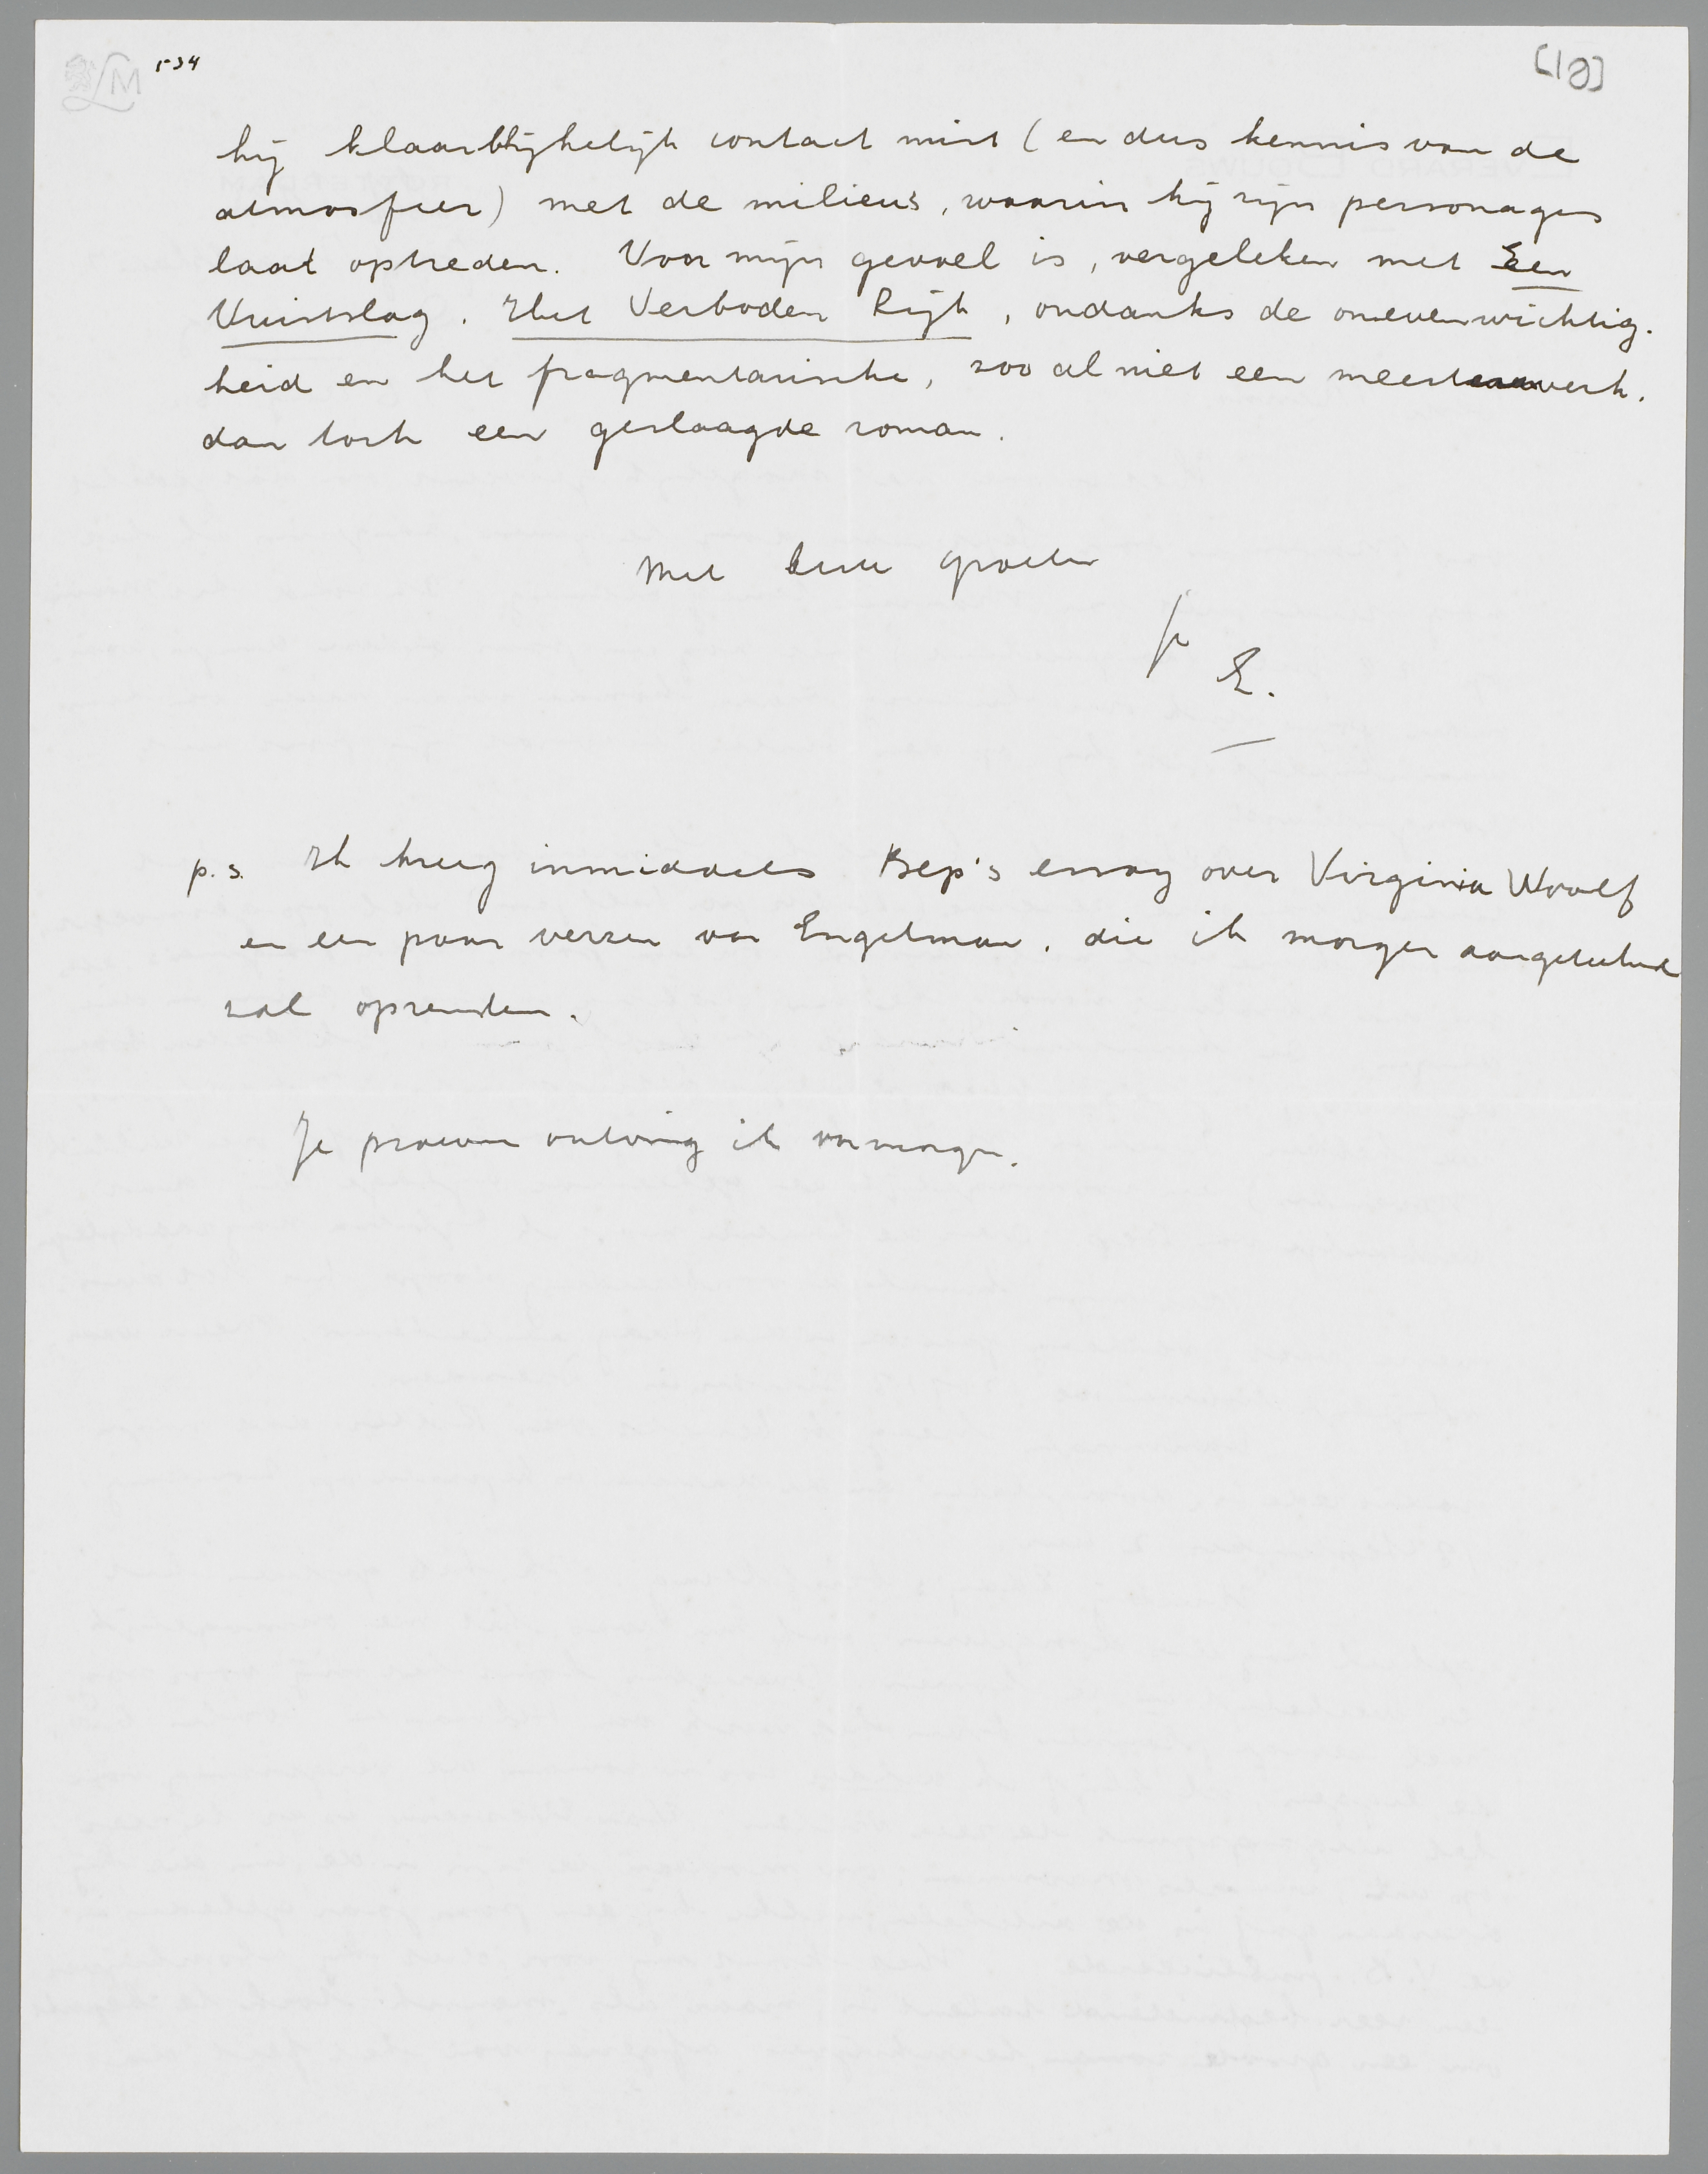 534
[18]
hij klaarblijkelijk contact mist (en dus kennis van de
atmosfeer) met de milieus, waarin hij zijn personages
laat optreden. Voor mijn gevoel is, vergeleken met Een
Vuistslag, Het Verboden Rijk, ondanks de onevenwichtig-
heid en het fragmentarische, zoo al niet een meesterwerk,
dan toch een geslaagde roman.
Met beste groeten
je
E.
p.s. Ik kreeg inmiddels Bep's essay over Virginia Woolf
en een paar verzen van Engelman, die ik morgen aangeteekend
zal opzenden.
Je proeven ontving ik vanmorgen.